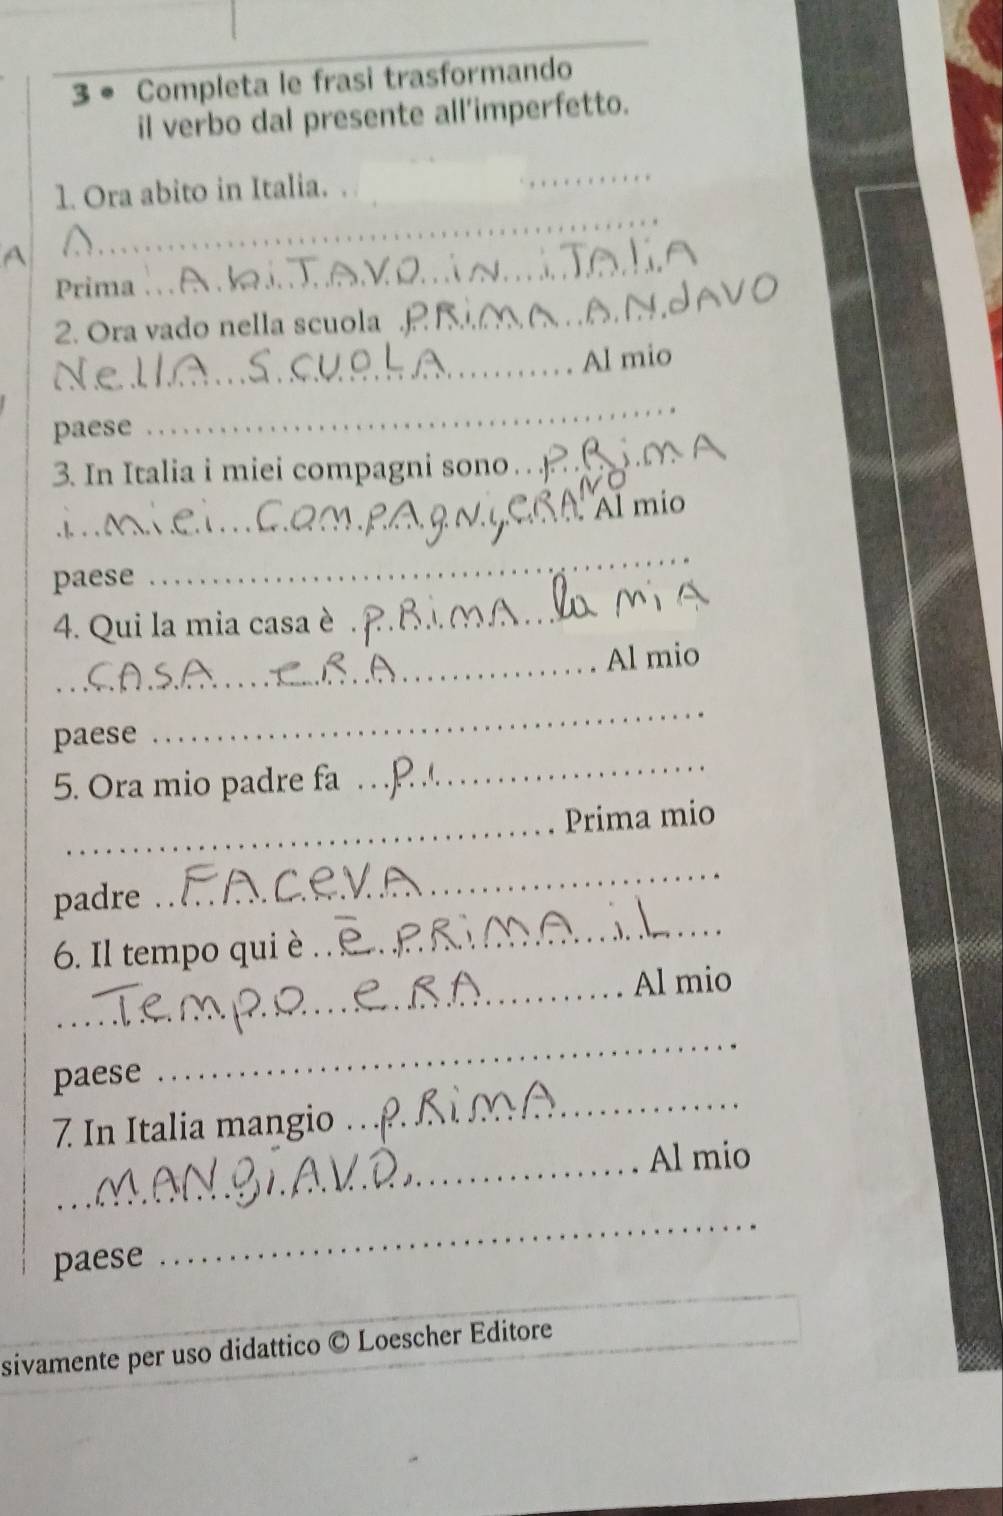 3 • Completa le frasi trasformando
il verbo dal presente all'imperfetto.
1. Ora abito in Italia. ..............
A A ..............
Prima ... ABiTAVO iN iTAliA
2. Ora vado nella scuola . PRiMA ANdAVO
NellA SCUOLA .......... Al mio
paese ..............
3. In Italia i miei compagni sono ... PRiMA
i Miei COMPAgNi ERANO Al mio
paese ..............
4. Qui la mia casa è . PRiMA la MiA
... CASA eRA .............. Al mio
paese ..............
5. Ora mio padre fa ... P ..............
.............. Prima mio
padre ... FACeVA ..............
6. Il tempo qui è ... e PRiMA iL ....
..... TeMpO eRA .......... Al mio
paese ..............
7. In Italia mangio ... PRiMA ..........
... MANgiAVO .............. Al mio
paese ..............
sivamente per uso didattico © Loescher Editore